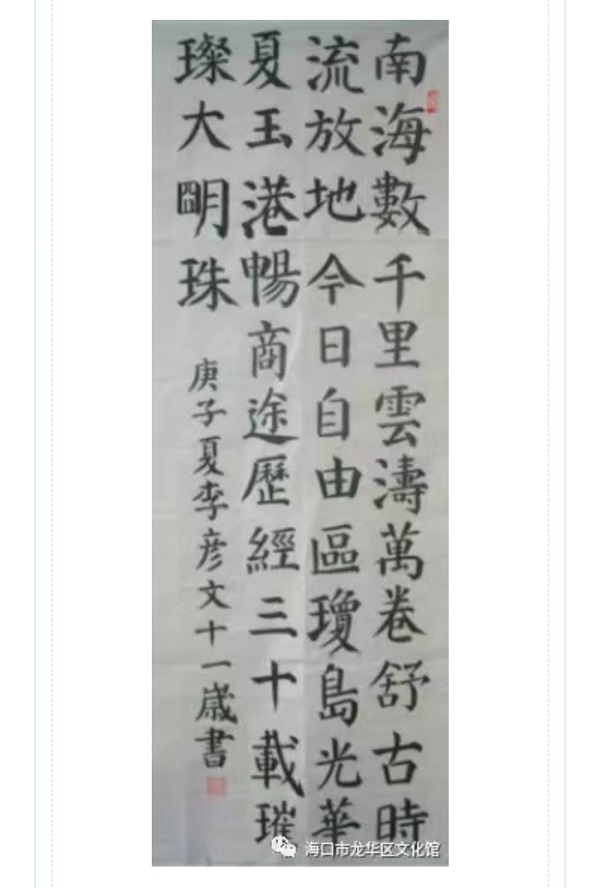 南海數千里雲濤萬卷舒古時
流放地今日自由區瓊島光華
夏玉港暢商途歷經三十載璀
璨大朙珠
庚子夏李彦文十一歲書
海口市龙华区文化馆